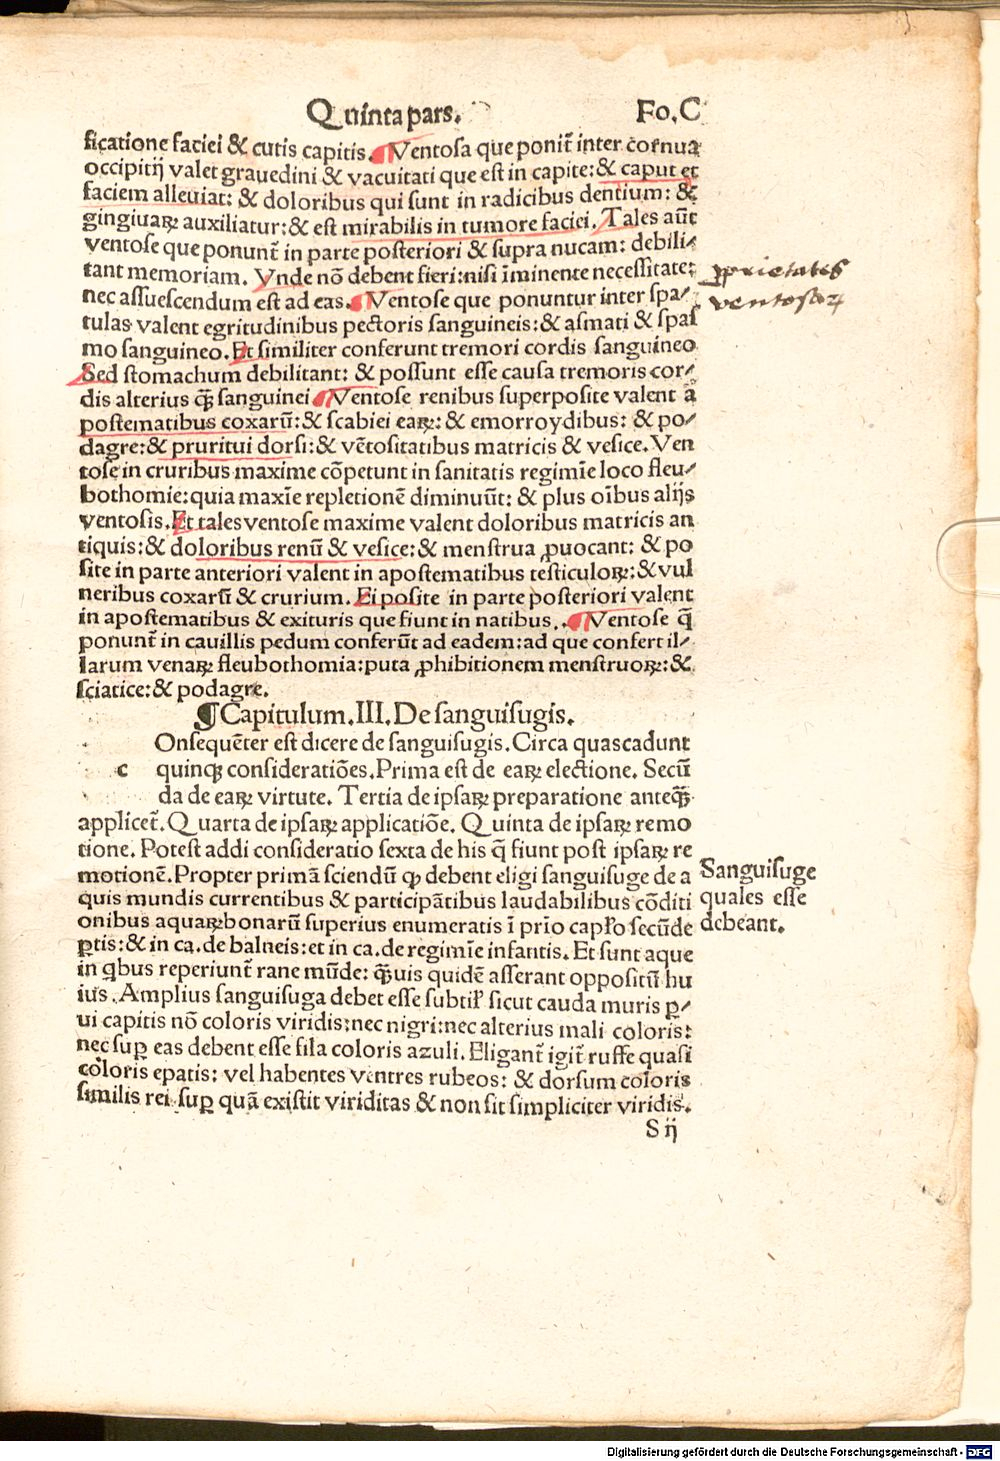 Quinta pars. Fo.C
ficatione faciei & cutis capitis. Ventosa que ponit̃ inter cornua
occipitij valet grauedini & vacuitati que est in capite: & caput et
faciem alleuiat: & doloribus qui sunt in radicibus dentium: &
gingiuaꝝ auxiliatur: & est mirabilis in tumore faciei. Tales aũt
ventose que ponunt̃ in parte posteriori & supra nucam: debili⸗
tant memoriam. Vnde nõ debent fieri: nisi ĩminente necessitate:
nec assuescendum est ad eas. Ventose que ponuntur inter spa⸗
tulas valent egritudinibus pectoris sanguineis: & asmati & spas
mo sanguineo. Et similiter conferunt tremori cordis sanguineo
Sed stomachum debilitant: & possunt esse causa tremoris cor⸗
dis alterius q̃ȝ sanguinei Ventose renibus superposite valent ã
postematibus coxarũ: & scabiei eaꝝ: & emorroydibus: & po⸗
dagre: & pruritui dorsi: & vẽtositatibus matricis & vesice. Ven
tose in cruribus maxime cõpetunt in sanitatis regimĩe loco fleu⸗
bothomie: quia maxĩe repletionẽ diminuũt: & plus oĩbus alijs
ventosis. Et tales ventose maxime valent doloribus matricis an
tiquis: & doloribus renũ & vesice: & menstrua ꝓuocant: & po
site in parte anteriori valent in apostematibus testiculoꝝ: & vul
neribus coxarũ & crurium. Ei posite in parte posteriori valent
in apostematibus & exituris que fiunt in natibus. Ventose q̃
ponunt̃ in cauillis pedum conferũt ad eadem: ad que confert il⸗
larum venaꝝ fleubothomia: puta ꝓhibitionem menstruoꝝ: &
sciatice: & podagre.
¶ Capitulum. III. De sanguisugis.
Onsequẽter est dicere de sanguisugis. Circa quas cadunt
c quinqȝ consideratiões. Prima est de eaꝝ electione. Secũ
da de eaꝝ virtute. Tertia de ipsaꝝ preparatione anteq̃ȝ
applicet̃. Quarta de ipsaꝝ applicatiõe. Quinta de ipsaꝝ remo
tione. Potest addi consideratio sexta de his q̃ fiunt post ipsaꝝ re
motionẽ. Propter primã sciendũ ꝙ debent eligi sanguisuge de a
quis mundis currentibus & participãtibus laudabilibus cõditi
onibus aquaꝝ bonarũ superius enumeratis ĩ prĩo capło secũde
ꝑtis: & in ca. de balneis: et in ca. de regimĩe infantis. Et sunt aque
in qbus reperiunt̃ rane mũde: q̃ȝuis quidẽ asserant oppositũ hu
ius. Amplius sanguisuga debet esse subtił sicut cauda muris ꝑ⸗
ui capitis nõ coloris viridis: nec nigri: nec alterius mali coloris:
nec suꝑ eas debent esse fila coloris azuli. Eligant̃ igit̃ ruffe quasi
coloris epatis: vel habentes ventres rubeos: & dorsum coloris
similis rei suꝑ quã existit viriditas & non sit simpliciter viridis.
S ij
ꝓprietates
ventosaꝝ
Sanguisuge
quales esse
debeant.
Digitalisierung gefördert durch die Deutsche Forschungsgemeinschaft - DFG